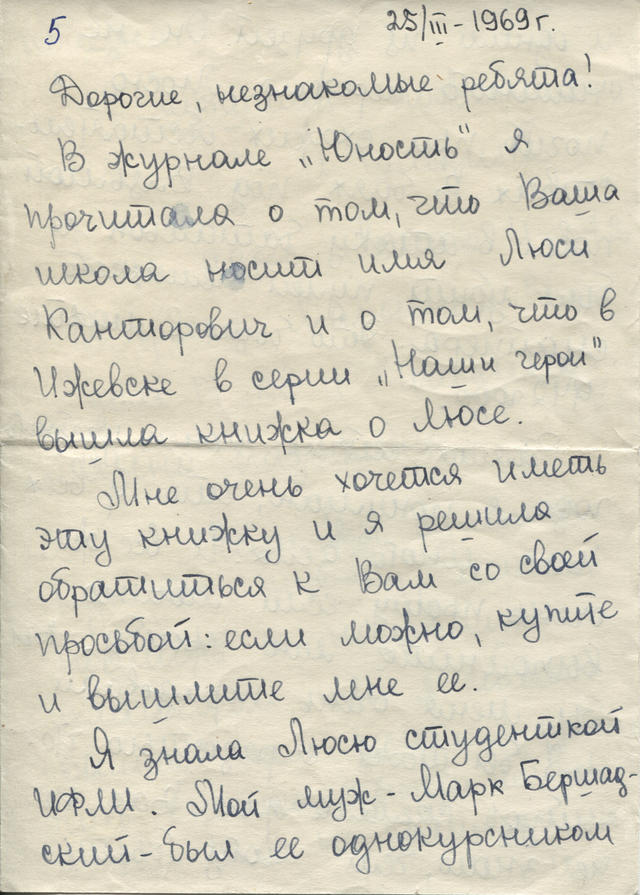 5
25/III - 1969 г.
Дорогие, незнакомые ребята!
В журнале „Юность" я
прочитала о том, что Ваша
школа носит имя Люси
Канторович и о том, что в
Ижевске в серии „Наши герои"
вышла книжка о Люсе.
Мне очень хочется иметь
эту книжку и я решила
обратиться к Вам со своей
просьбой: если можно, купите
и вышлите мне ее.
Я знала Люсю студенткой
ИФЛИ. Мой муж - Марк Бершад-
ский - был ее однокурсником